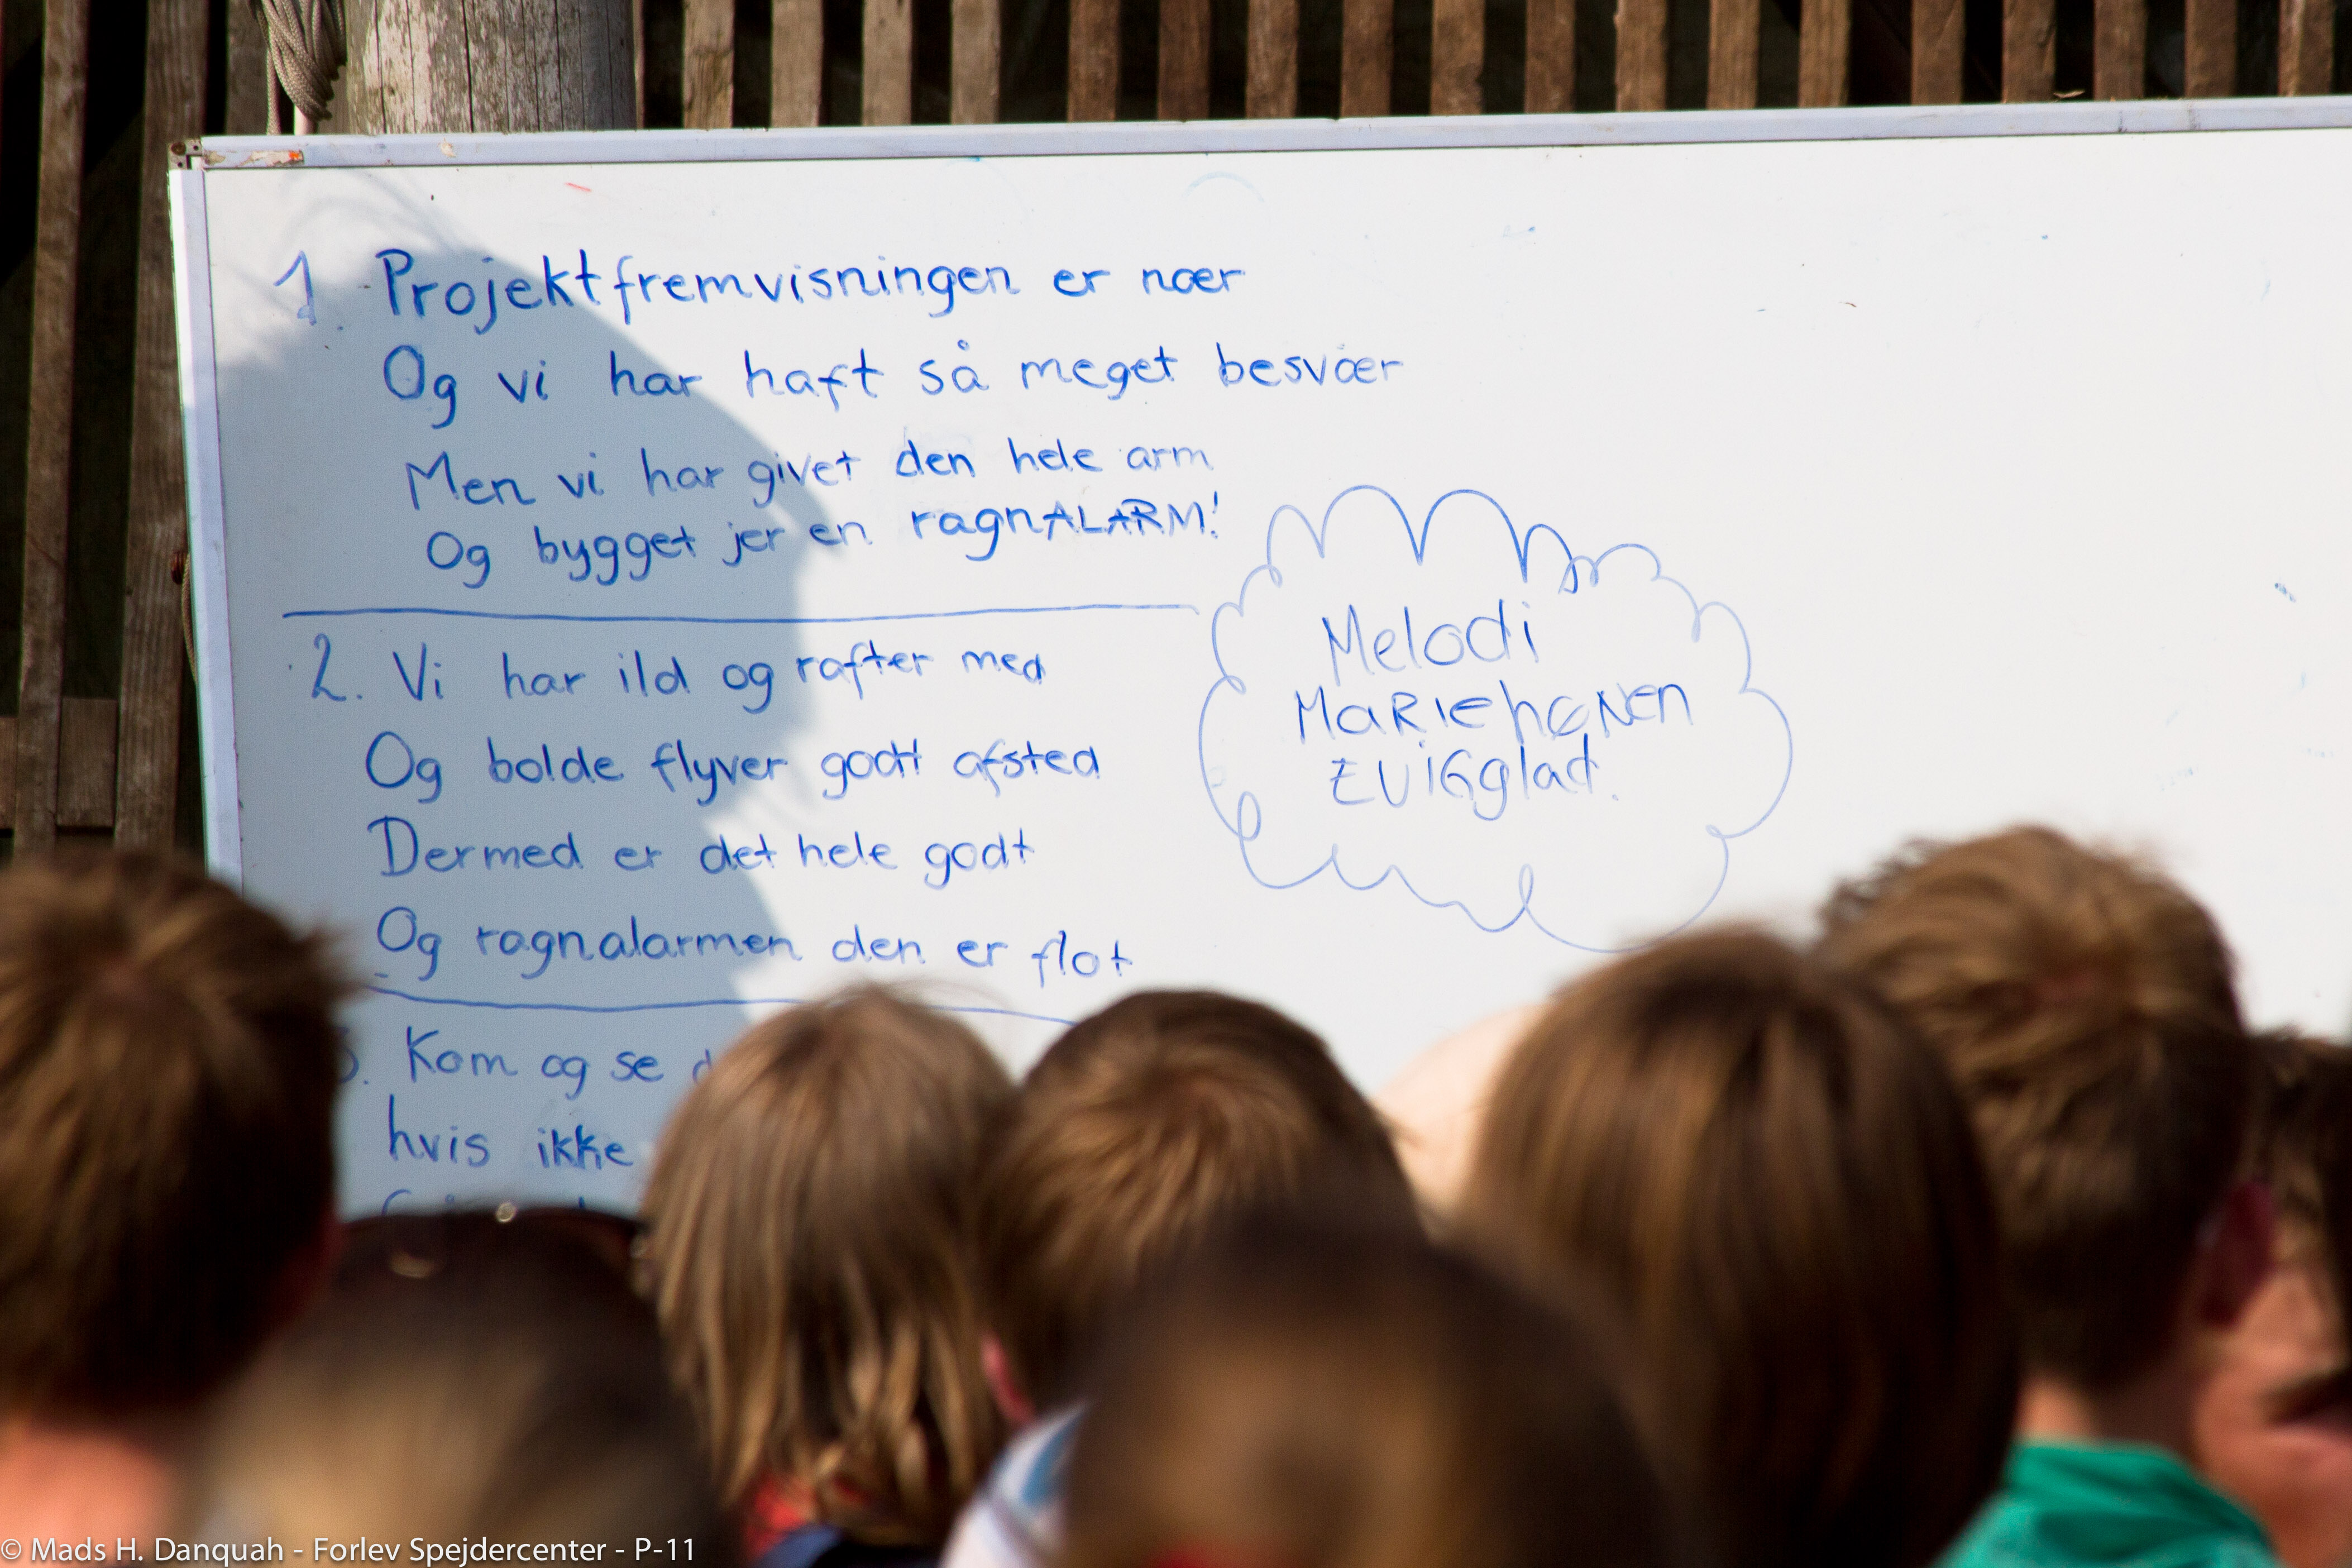 1. Projektfremvisningen er nær
Og vi har haft så meget besvær
Men vi har givet den hele arm
Og bygget jer en ragnALARM!
2. Vi har ild og rafter med
Og bolde flyver godt afsted
Dermed er det hele godt
Og ragnalarmen den er flot
Kom og se
hvis ikke
Melodi
MaRiehøNen
EViGglad.
© Mads H. Danquah - Forlev Spejdercenter - P-11